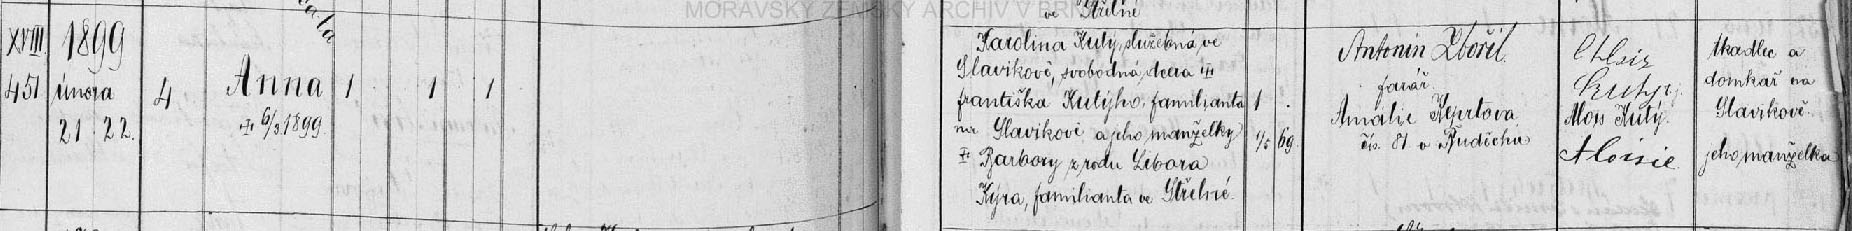 MORAVSKÝ ZEMSKÝ ARCHIV V BR
ve Střelné
XVIII. 1899
451 února
21 22.
4
Anna
† 6/3 1899.
1 1 1
Karolina Kutý, služebná ve
Slavíkově, svobodná, dcera †
Františka Kutýho, familianta
na Slavíkově a jeho manželky
† Barbory z rodu Libora
Kýra, familianta ve Střelné.
1
69.
Antonín Zbořil
farář
Amálie Keprtova
čís. 81 v
Alois
Kutý
Alois Kutý
Aloisie
tkadlec a
domkař na
Slavíkově.
jeho manželka